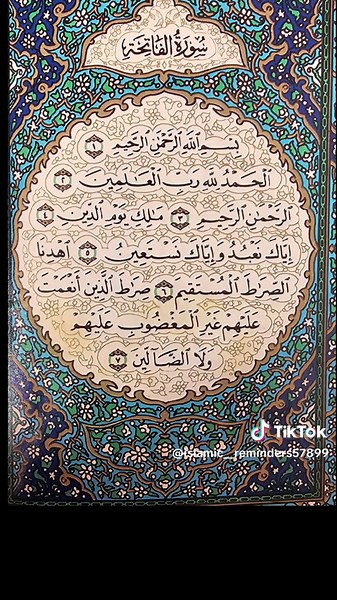 سُورَةُ الفَاتِحَةِ
بِسْمِ ٱللَّهِ ٱلرَّحْمَٰنِ ٱلرَّحِيمِ ١
ٱلْحَمْدُ لِلَّهِ رَبِّ ٱلْعَٰلَمِينَ ٢
ٱلرَّحْمَٰنِ ٱلرَّحِيمِ ٣ مَٰلِكِ يَوْمِ ٱلدِّينِ ٤
إِيَّاكَ نَعْبُدُ وَإِيَّاكَ نَسْتَعِينُ ٥ ٱهْدِنَا
ٱلصِّرَٰطَ ٱلْمُسْتَقِيمَ ٦ صِرَٰطَ ٱلَّذِينَ أَنْعَمْتَ
عَلَيْهِمْ غَيْرِ ٱلْمَغْضُوبِ عَلَيْهِمْ
وَلَا ٱلضَّآلِّينَ ٧
TikTok
@islamic_reminders57899